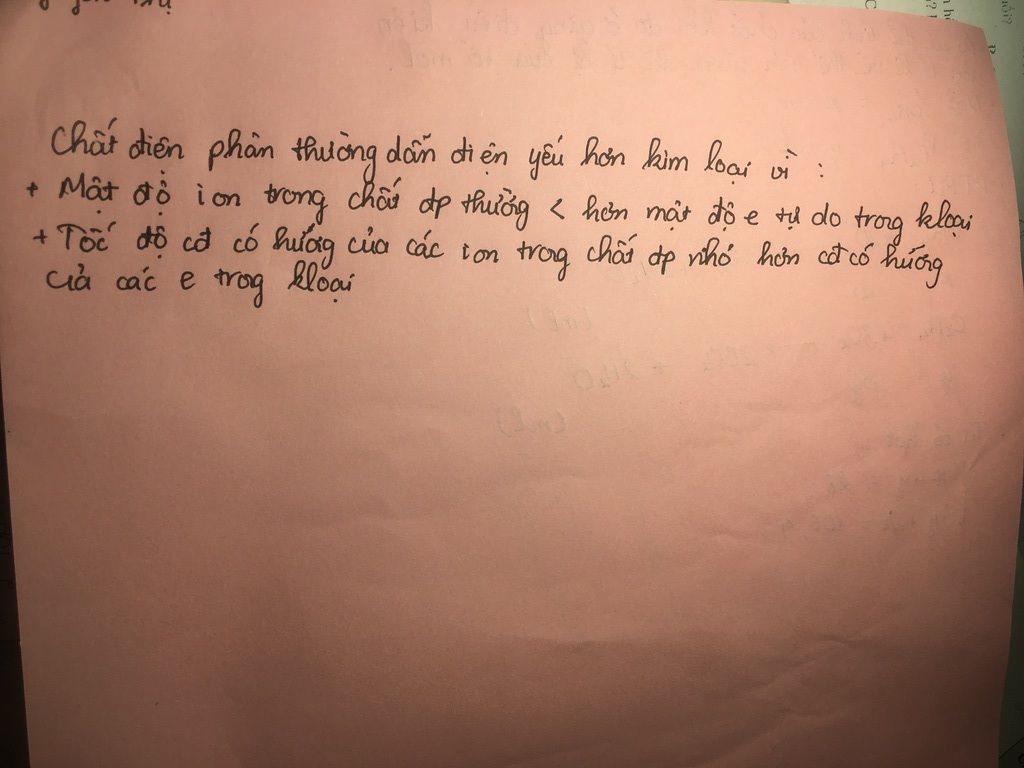 Chất điện phân thường dẫn điện yếu hơn kim loại vì :
+ Mật độ ion trong chất đp thường < hơn mật độ e tự do trong kloại
+ Tốc độ cđ có hướng của các ion trong chất đp nhỏ hơn cđ có hướng
của các e trong kloại